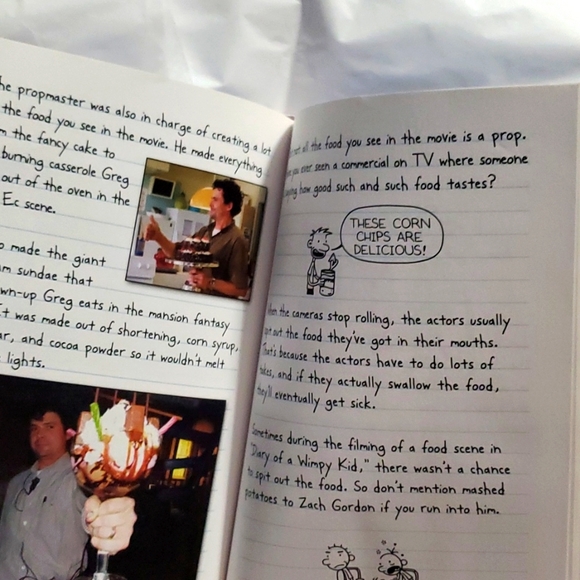 he propmaster was also in charge of creating a lot
the food you see in the movie. He made everything
m the fancy cake to
burning casserole Greg
out of the oven in the
Ec scene.
o made the giant
am sundae that
wn-up Greg eats in the mansion fantasy
It was made out of shortening, corn syrup,
ar, and cocoa powder so it wouldn't melt
lights.
not all the food you see in the movie is a prop.
you ever seen a commercial on TV where someone
saying how good such and such food tastes?
THESE CORN
CHIPS ARE
DELICIOUS!
When the cameras stop rolling, the actors usually
spit out the food they've got in their mouths.
That's because the actors have to do lots of
takes, and if they actually swallow the food,
they'll eventually get sick.
Sometimes during the filming of a food scene in
"Diary of a Wimpy Kid," there wasn't a chance
to spit out the food. So don't mention mashed
potatoes to Zach Gordon if you run into him.